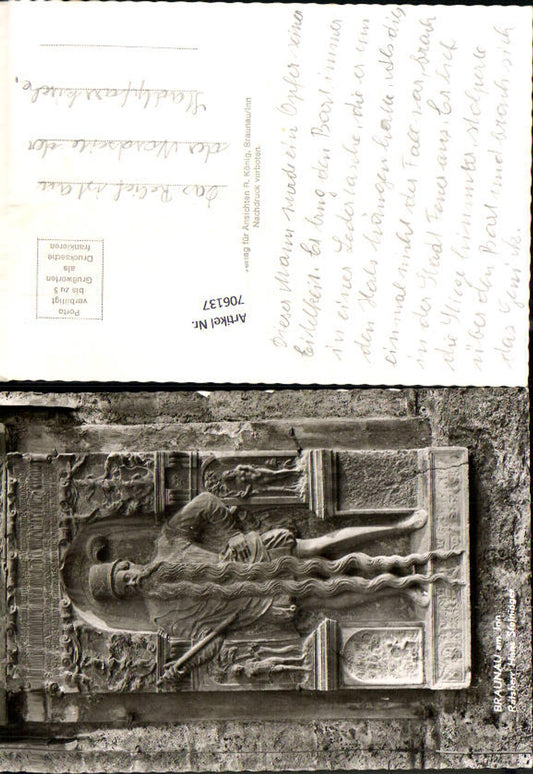 Dieser Mann wurde ein Opfer seiner
Eitelkeit. Er trug den Bart immer
in einer Ledertasche, die er um
den Hals hängen hatte. Als dies
einmal nicht der Fall war, brach
in der Stadt Feuer aus. Er lief
die Stiege hinunter, stolperte
über den Bart und brach sich
das
Das Relief ist an
der Nordseite der
Stadtpfarrkirche.
Verlag für Ansichten R. König, Braunau/Inn
Nachdruck verboten.
Porto
verbilligt
bis zu 5
Grußworten
als
Drucksache
frankieren
Artikel Nr.
706137
BRAUNAU am Inn
Ratsherr Hans Steininger